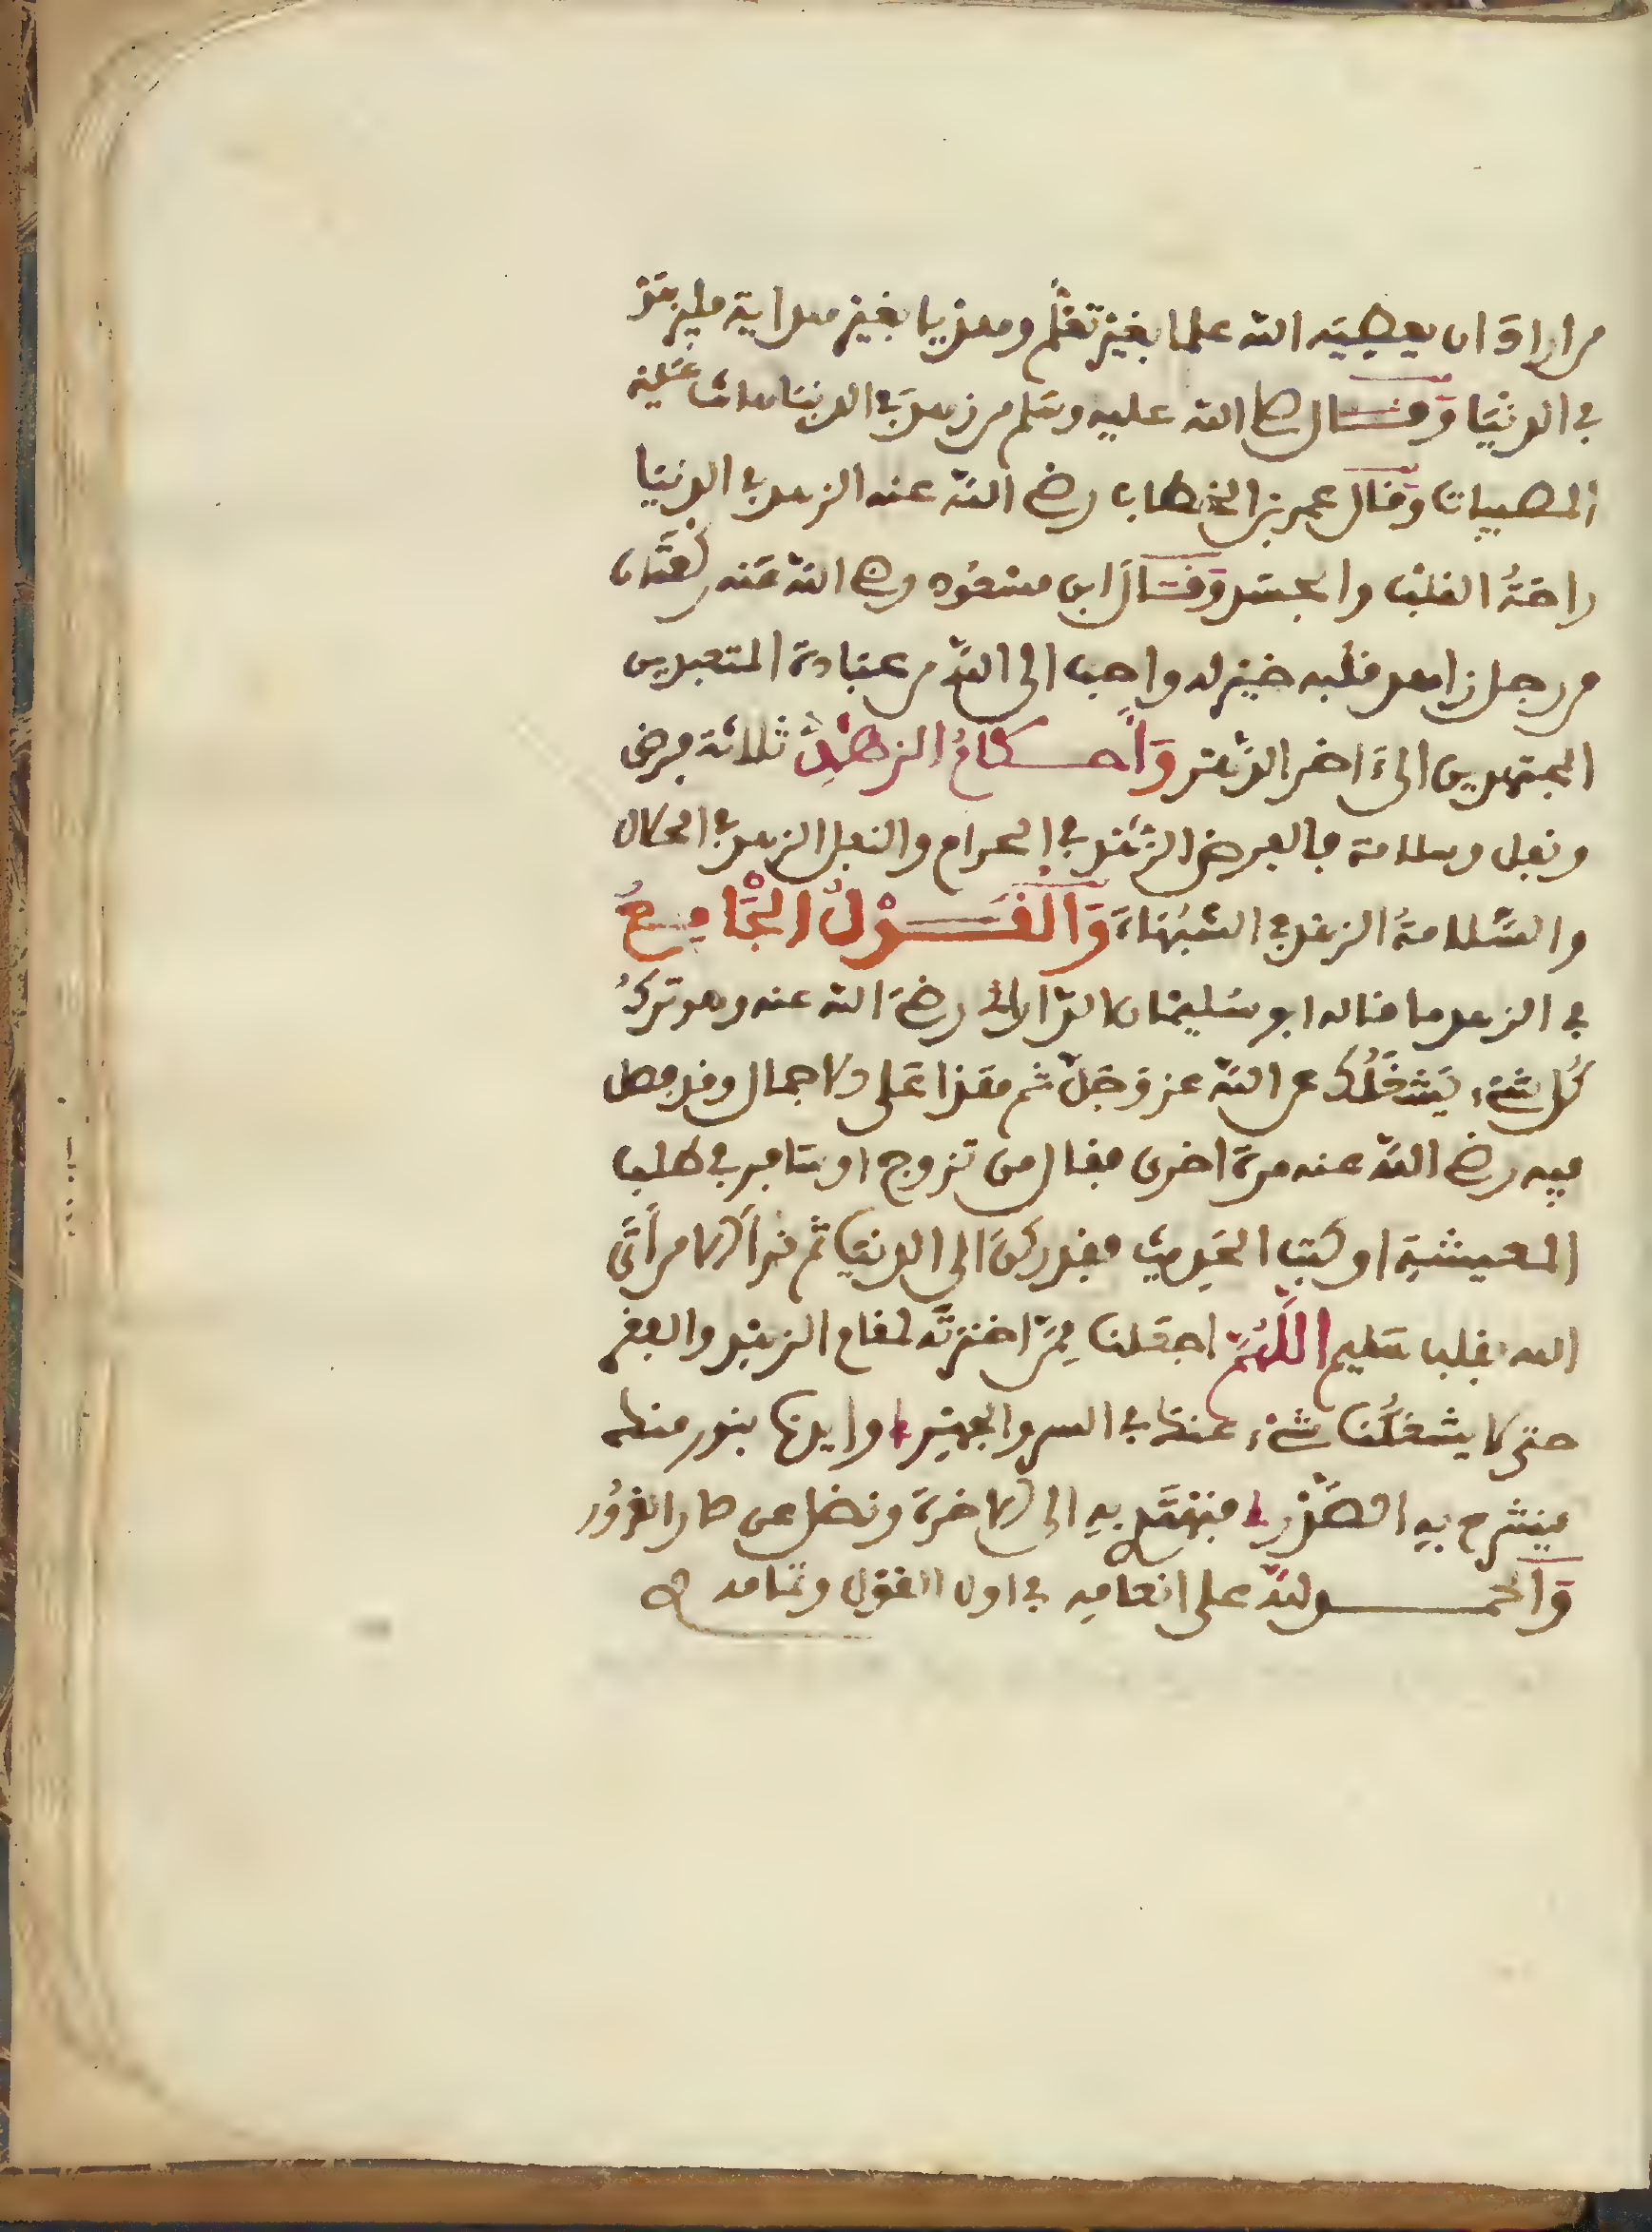 من اراد ان يعطيه الله علما بغير تعلم وهديا بغير هداية فليزهد
في الدنيا وقال صلى الله عليه وسلم من زهد في الدنيا هانت عليه
المصيبات وقال عمر بن الخطاب رضي الله عنه الزهد في الدنيا
راحة القلب والجسد وقال ابن مسعود رضي الله عنه ركعتان
من رجل زاهد قلبه خير له واحب الى الله من عبادة المتعبدين
المجتهدين الى ءاخر الدهر واحكام الزهد ثلاثة فرض
ونفل وسلامة فالفرض الزهد في الحرام والنفل الزهد في الحلال
والسلامة الزهد في الشبهاة والقول الجامع
في الزهد ما قاله ابو سليمان الداراني رضي الله عنه وهو ترك
كل شيء يشغلك عن الله عز وجل ثم هذا على الاجمال وقد فصل
فيه رضي الله عنه مرة اخرى فقال من تزوج او سافر في طلب
المعيشة او كتب الحديث فقد ركن الى الدنيا ثم قرأ الا من أتى
الله بقلب سليم اللهم اجعلنا ممن اخترته لمقام الزهد والفقر
حتى لا يشغلنا شيء عنك في السر والجهر وايدنا بنور منك
ينشرح به الصدر فنهتد به الى الاخرة ونضل عن دار الغرور
والحمد لله على انعامه في اول القول وتمامه